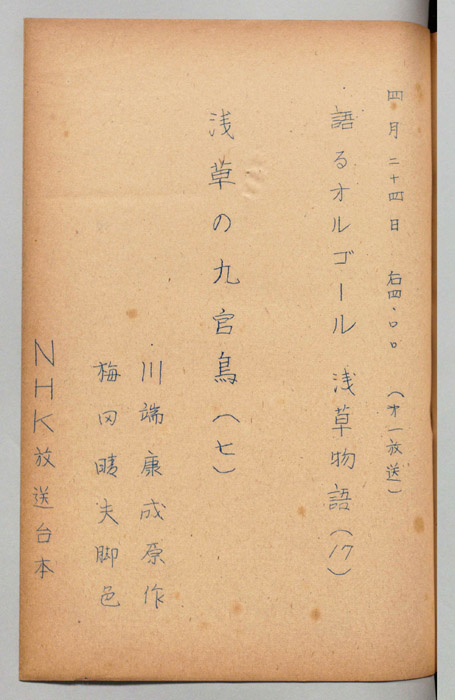 四月二十四日 右四・〇〇 (才一放送)
語るオルゴール 浅草物語(17)
浅草の九官鳥(七)
川端康成原作
梅田晴夫脚色
NHK放送台本